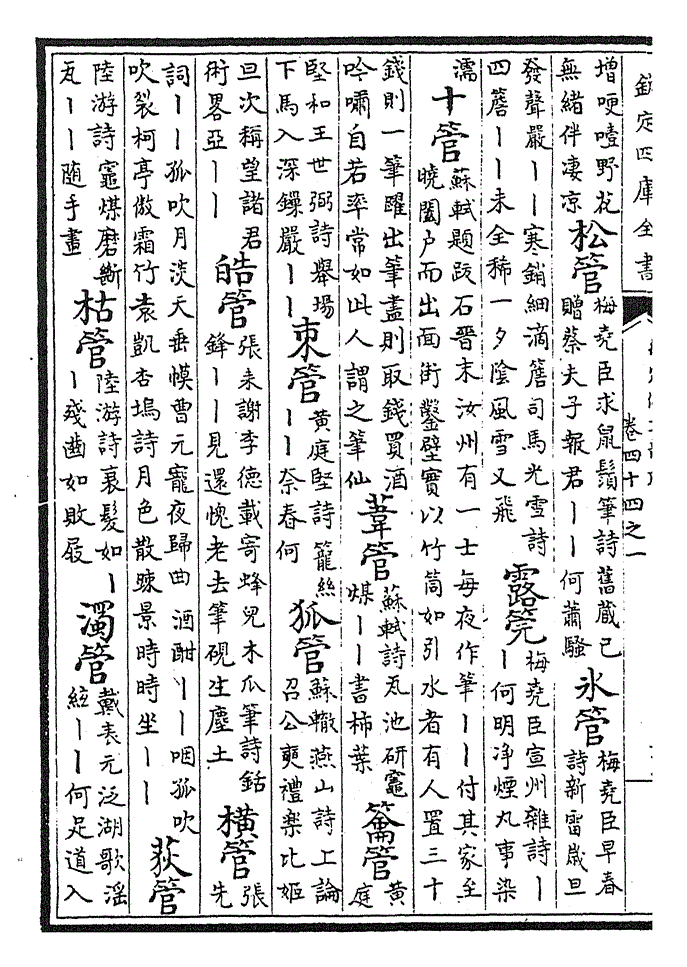 欽定四庫全書
卷四十四之一
增哽噎野花
無緒伴凄凉
松管
梅堯臣求鼠鬚筆詩舊蔵已
贈蔡夫子報君丨丨何蕭騷
氷管
梅堯臣早春
詩新雷嵗旦
發聲嚴丨丨寒銷細滴簷司馬光雪詩
四簷丨丨未全稀一夕陰風雪又飛
露筦
梅堯臣宣州雜詩丨
丨何明净煙丸事染
濡
十管
蘇軾題跋石晉末汝州有一士每夜作筆丨丨付其家至
曉闔户而出面街鑿壁實以竹筒如引水者有人置三十
錢則一筆躍出筆盡則取錢買酒
吟嘯自若率常如此人謂之筆仙
葦管
蘇軾詩瓦池研竈
煤丨丨書柿葉
籥管
黄
庭
堅和王世弼詩舉場
下馬入深鏁嚴丨丨
束管
黄庭堅詩籠絲
丨丨奈春何
狐管
蘇轍燕山詩上論
召公奭禮樂比姬
旦次稱望諸君
術畧亞丨丨
皓管
張耒謝李德載寄蜂兒木瓜筆詩銛
鋒丨丨見還愧老去筆硯生塵土
橫管
張
先
詞丨丨孤吹月淡天垂幙曹元寵夜歸曲酒酣丨丨咽孤吹
吹裂柯亭傲霜竹袁凱杏塢詩月色散踈景時時坐丨丨
荻管
陸游詩竈煤磨斷
瓦丨丨随手畫
枯管
陸游詩衰髮如丨
丨殘齒如敗屐
濁管
戴表元泛湖歌滛
絃丨丨何足道入